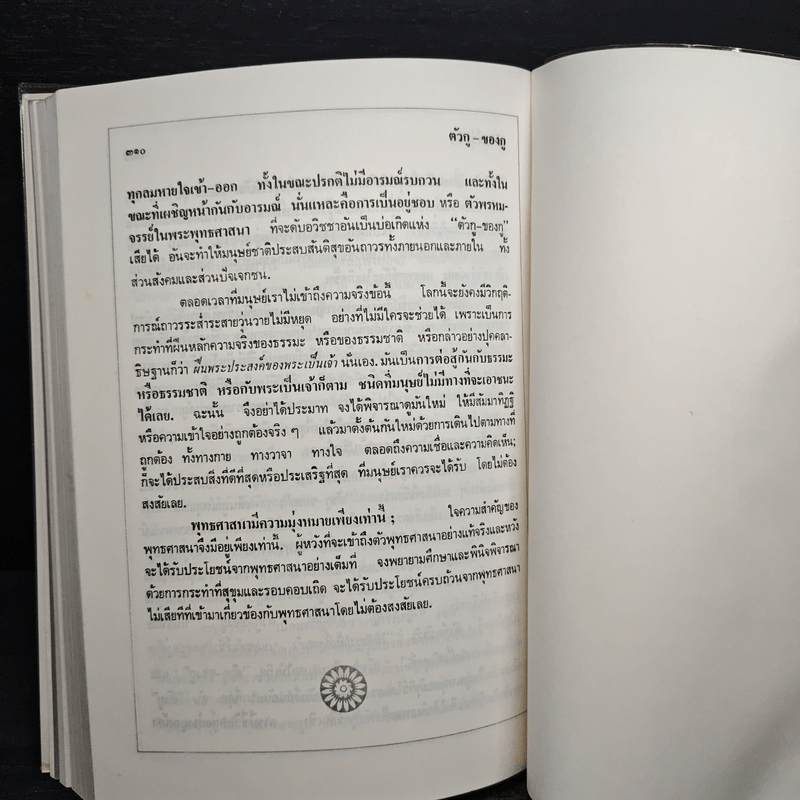 ๓๑๐
ตัวกู – ของกู
ทุกลมหายใจเข้า-ออก ทั้งในขณะปรกติไม่มีอารมณ์รบกวน และทั้งใน
ขณะที่เผชิญหน้ากันกับอารมณ์ นั่นแหละคือการเป็นอยู่ชอบ หรือ ตัวพรหม-
จรรย์ในพระพุทธศาสนา ที่จะดับอวิชชาอันเป็นบ่อเกิดแห่ง “ตัวกู-ของกู”
เสียได้ อันจะทำให้มนุษย์ชาติประสบสันติสุขอันถาวรทั้งภายนอกและภายใน ทั้ง
ส่วนสังคมและส่วนปัจเจกชน.
ตลอดเวลาที่มนุษย์เราไม่เข้าถึงความจริงข้อนี้ โลกนี้จะยังคงมีวิกฤติ-
การณ์ถาวรระส่ำระสายวุ่นวายไม่มีหยุด อย่างที่ไม่มีใครจะช่วยได้ เพราะเป็นการ
กระทำที่ฝืนหลักความจริงของธรรมะ หรือของธรรมชาติ หรือกล่าวอย่างปุคคลา-
ธิษฐานก็ว่า ฝืนพระประสงค์ของพระเป็นเจ้า นั่นเอง. มันเป็นการต่อสู้กันกับธรรมะ
หรือธรรมชาติ หรือกับพระเป็นเจ้าก็ตาม ชนิดที่มนุษย์ไม่มีทางที่จะเอาชนะ
ได้เลย. ฉะนั้น จึงอย่าได้ประมาท จงได้พิจารณาดูมันใหม่ ให้มีสัมมาทิฏฐิ
หรือความเข้าใจอย่างถูกต้องจริง ๆ แล้วมาตั้งต้นกันใหม่ด้วยการเดินไปตามทางที่
ถูกต้อง ทั้งทางกาย ทางวาจา ทางใจ ตลอดถึงความเชื่อและความคิดเห็น;
ก็จะได้ประสบสิ่งที่ดีที่สุดหรือประเสริฐที่สุด ที่มนุษย์เราควรจะได้รับ โดยไม่ต้อง
สงสัยเลย.
พุทธศาสนามีความมุ่งหมายเพียงเท่านี้ ; ใจความสำคัญของ
พุทธศาสนาจึงมีอยู่เพียงเท่านี้. ผู้หวังที่จะเข้าถึงตัวพุทธศาสนาอย่างแท้จริงและหวัง
จะได้รับประโยชน์จากพุทธศาสนาอย่างเต็มที่ จงพยายามศึกษาและพินิจพิจารณา
ด้วยการกระทำที่สุขุมและรอบคอบเถิด จะได้รับประโยชน์ครบถ้วนจากพุทธศาสนา
ไม่เสียทีที่เข้ามาเกี่ยวข้องกับพุทธศาสนาโดยไม่ต้องสงสัยเลย.